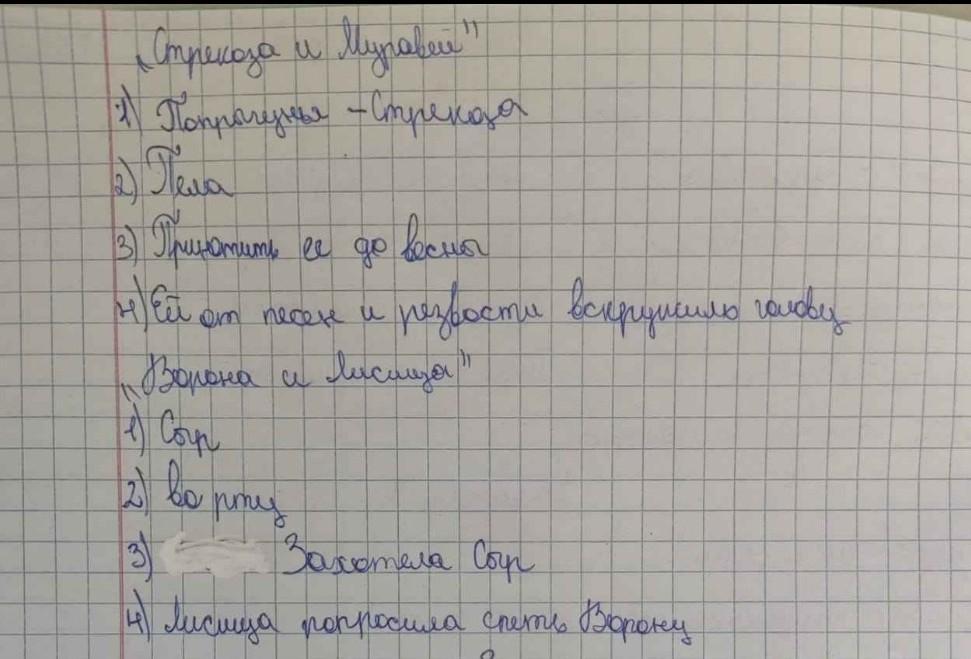 „Стрекоза и Муравей"
1) Попрыгунья - Стрекоза
2) Пела
3) Приютить ее до весны
4) Ей от песен и резвости вскружило голову
„Ворона и Лисица"
1) Сыр
2) во рту
3) Захотела Сыр
4) Лисица попросила спеть Ворону